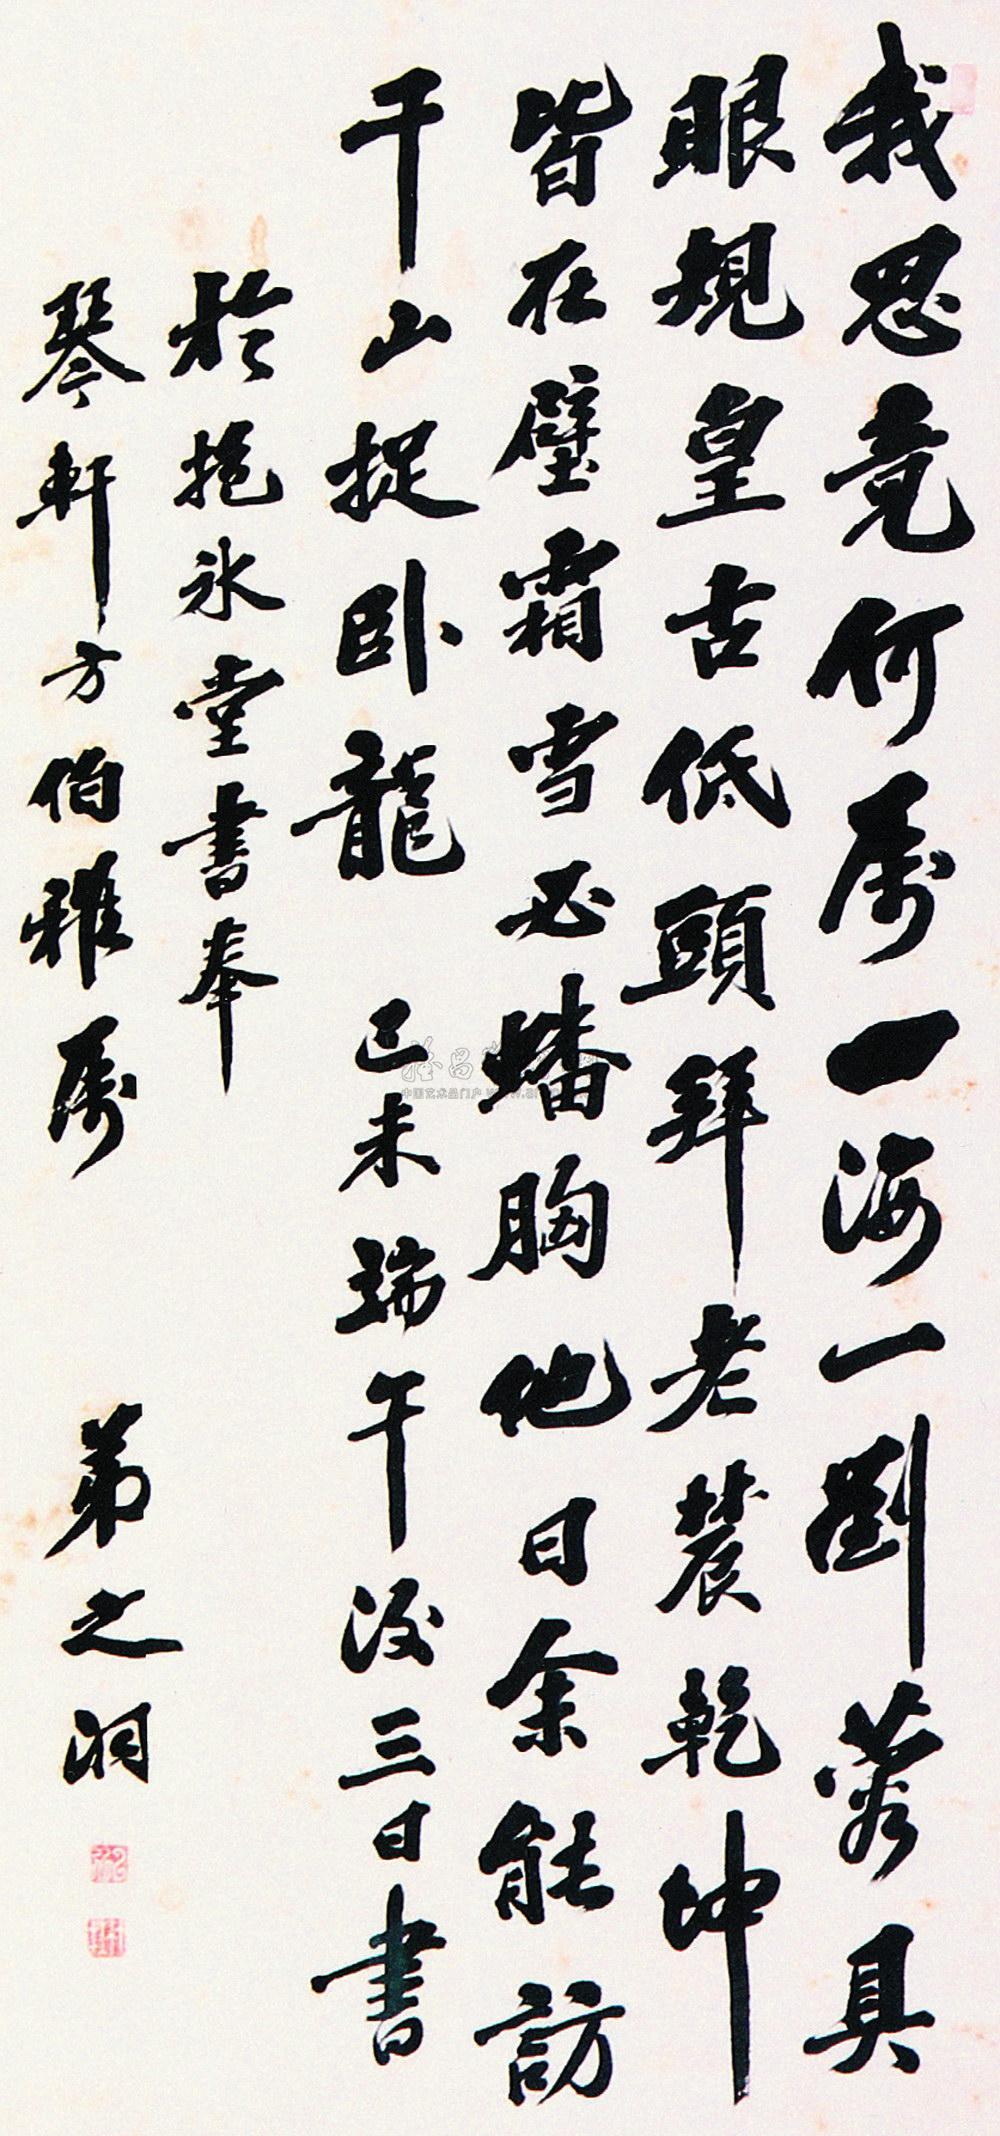 我忍竟何属一海一劉蓉具
眼規皇古低頭拜老農乾坤
皆在壁霜雪必蟠胸他日余能訪
千山捉卧龍 己未端午後三日書
於抱冰堂書奉
琴軒方伯雅属
弟之洞